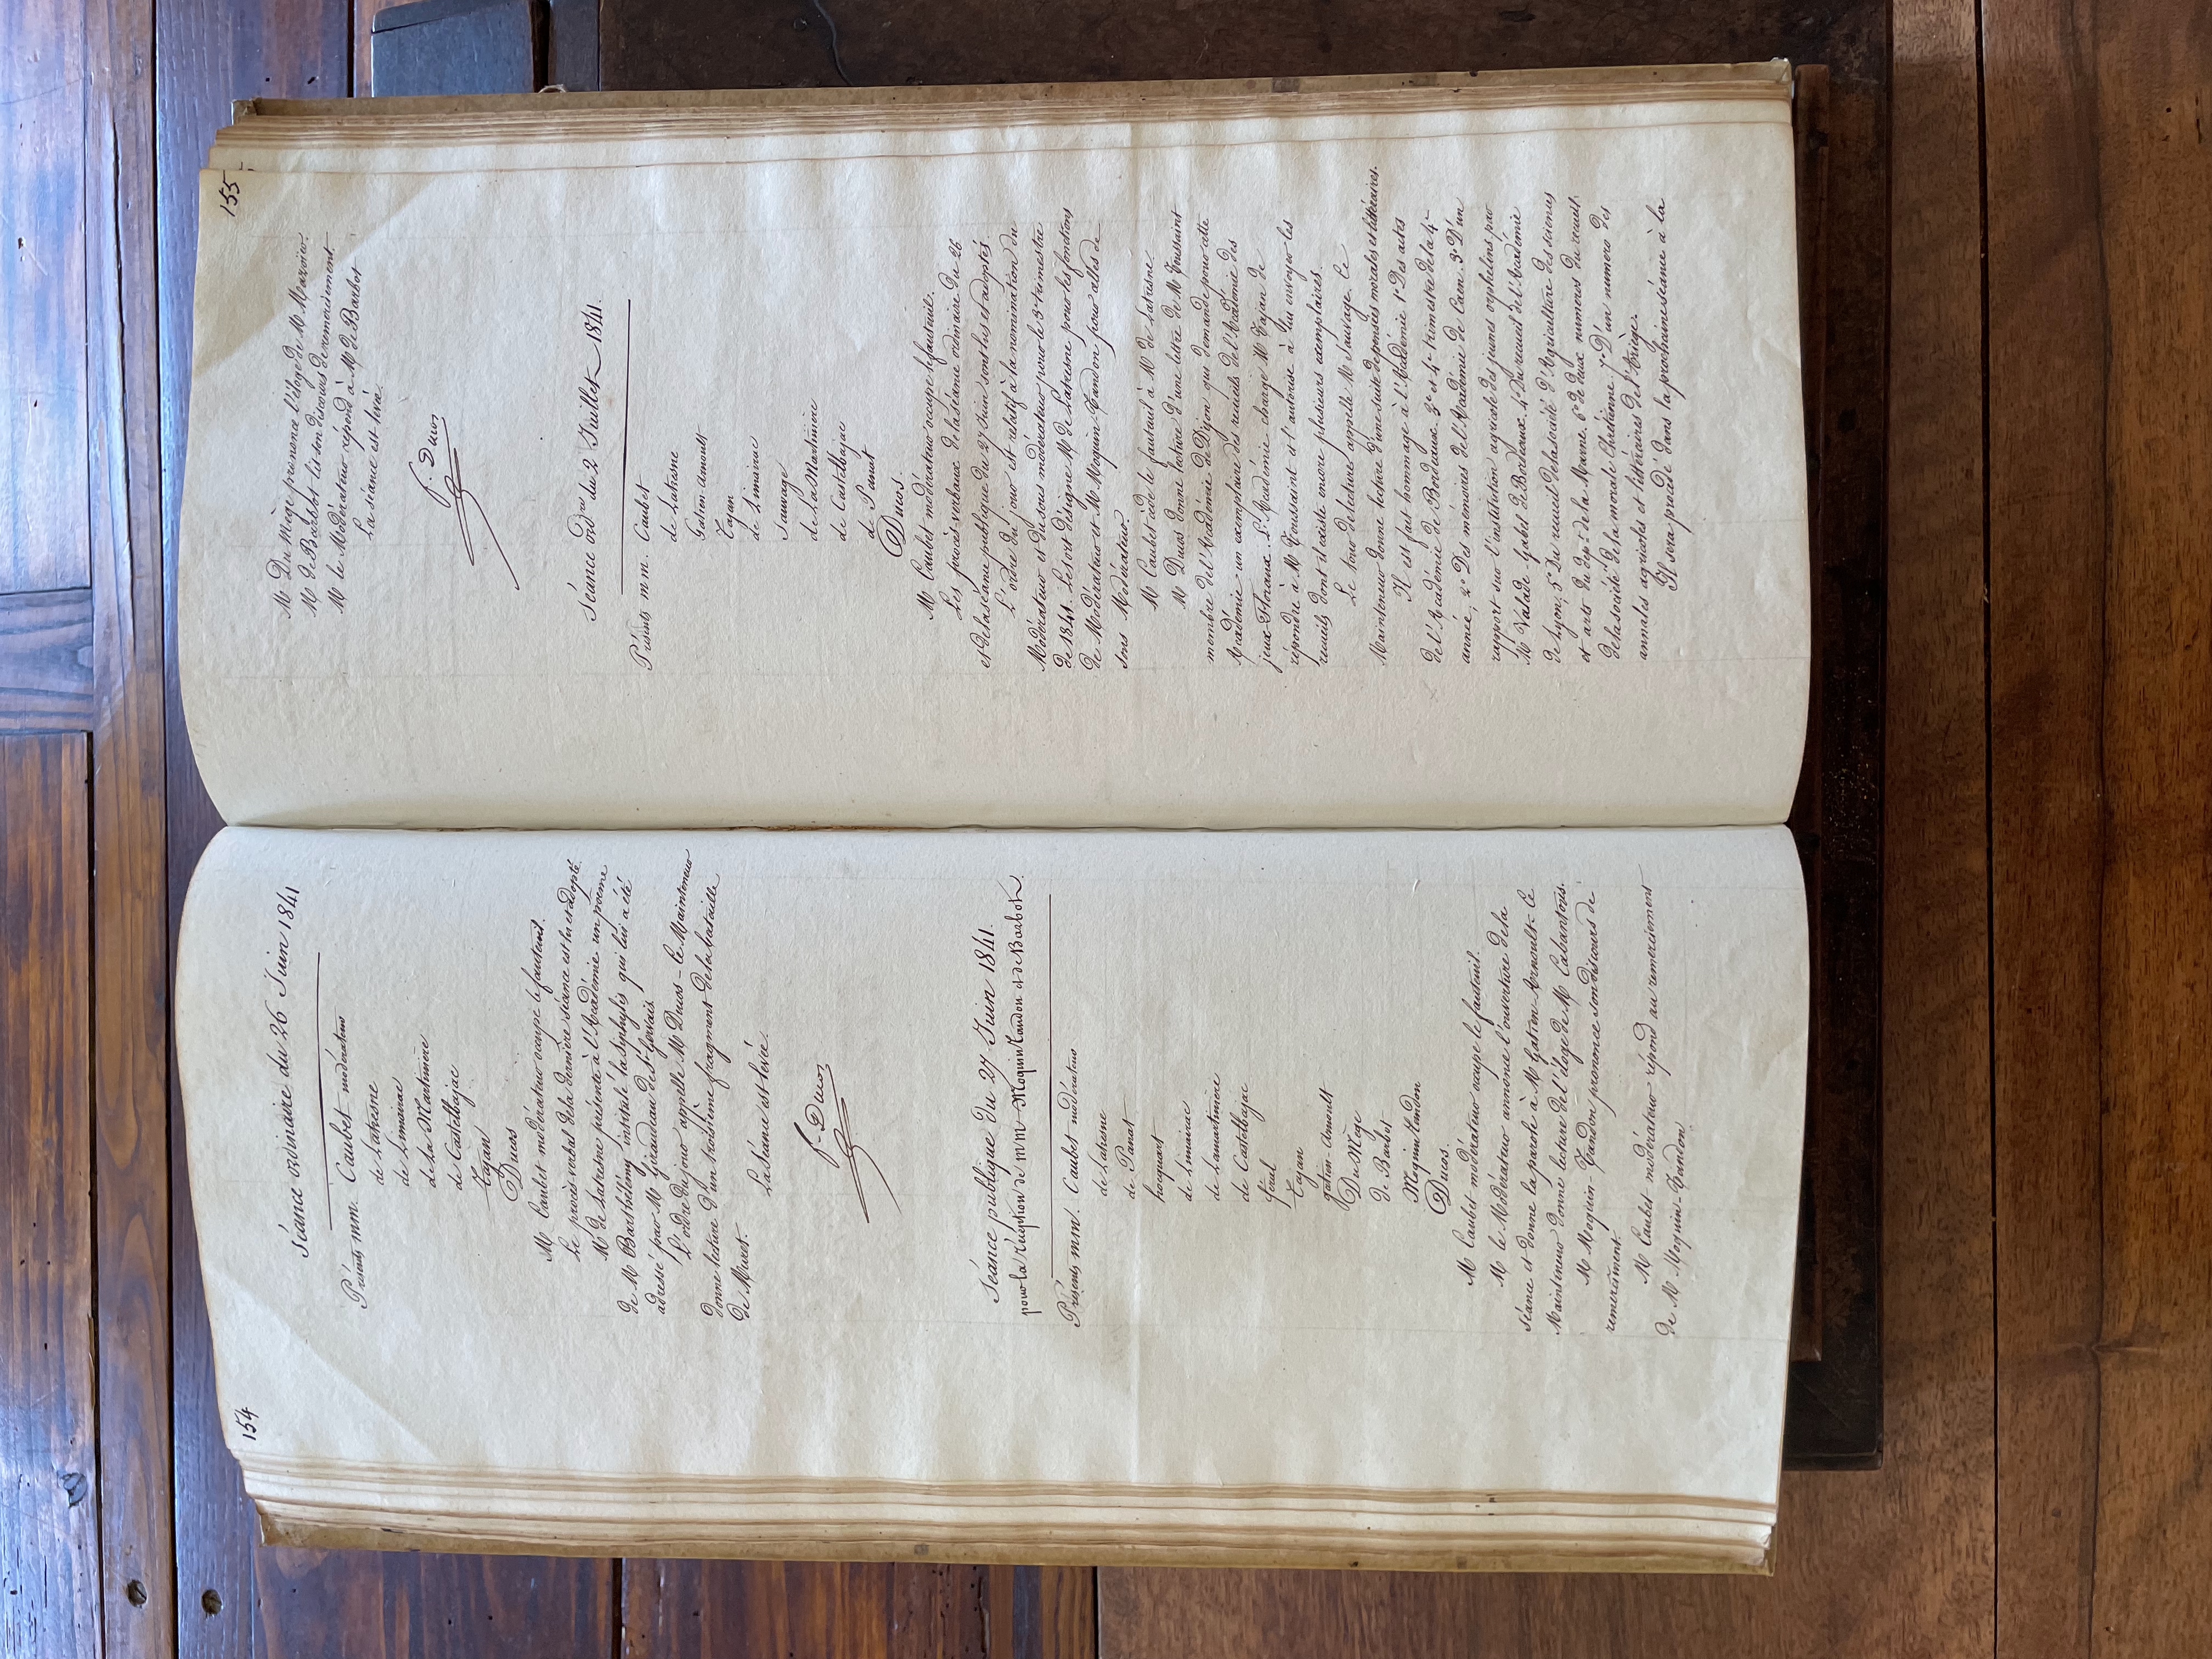 154
Séance ordinaire du 26 Juin 1841
Présents mm. Caubet modérateur
de Latresne
de Limairac
de La Martinière
de Castelbajac
Tajan
Ducos
M Caubet modérateur occupe le fauteuil.
Le procès verbal de la dernière séance est lu et adopté.
M de Latresne présente à l'Académie un poème
de M Barthélemy intitulé la Syphylis qui lui a été
adressé par M Giraudeau de St-Gervais
L'ordre du jour appelle M Ducos - le Mainteneur
donne lecture d'un troisième fragment de la bataille
de Muret.
La Séance est levée.
f. Ducos
Séance publique du 27 Juin 1841.
pour la réception de mm Moquin Tandon et de Barbot.
Présents mm. Caubet modérateur
de Latresne
de Panat
hocquart
de Limairac
de Lamartinière
de Castelbajac
féral
Tajan
gatien-arnoult
Du Mège
de Barbot
Moquin tandon
Ducos.
M Caubet modérateur occupe le fauteuil.
M le Modérateur annonce l'ouverture de la
séance et donne la parole à M Gatien-Arnoult - le
Mainteneur donne lecture de l'éloge de M Cabantous.
M Moquin-Tandon prononce son discours de
remerciment.
M Caubet modérateur répond au remerciement
de M Moquin-Tandon
155
M Du Mège prononce l'éloge de M
M de Barbot lit son discours de remerciement
M le Modérateur répond à M de Barbot
La séance est levée.
f. Ducos
Séance ordre du 2 Juillet 1841.
Présents mm. Caubet
de Latresne
Gatien Arnoult
Tajan
de Limairac
Sauvage
de La Martinière
de Castelbajac
de Panat
Ducos.
M Caubet modérateur occupe le fauteuil.
Les procès verbaux de la séance ordinaire du 26
et de la séance publique du 27 Juin sont lus et adoptés.
L'ordre du jour est relatif à la nomination du
Modérateur et du sous modérateur pour le 3e trimestre
de 1841. Le sort désigne M de Latresne pour les fonctions
de Modérateur et M Moquin Tandon pour celles de
sous Modérateur.
M Caubet cède le fauteuil à M de Latresne.
M Ducos donne lecture d'une lettre de M Toussaint
membre de l'Académie de Dijon qui demande pour cette
Académie un exemplaire des recueils de l'Académie des
jeux-Floraux. L'Académie charge M Tajan de
répondre à M Toussaint et l'autorise à lui envoyer les
recueils dont il existe encore plusieurs exemplaires.
Le tour de lectures appelle M Sauvage. Le
Mainteneur donne lecture d'une suite de pensées morales et littéraires.
Il est fait hommage à l'Académie 1° Des actes
de l'Académie de Bordeaux. 3e et 4e trimestre de la 4e
année; 2° Des mémoires de l'Académie de Caen. 3° D'un
rapport sur l'institution agricole des jeunes orphelins par
M Valade-Gabel de Bordeaux. 4° Du recueil de l'Académie
de Lyon; 5° Du recueil de la société d'Agriculture des sciences
et arts du dépt de la Marne. 6° de deux numéros du recueil
de la société de la morale Chrétienne. 7° D'un numero des
annales agricoles et littéraires de l'Ariège.
Il sera procédé dans la prochaine séance à la